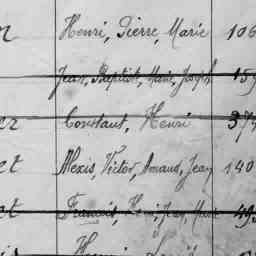 Henri, Pierre, Marie 106
Jean, Baptist, Marie, Joseph 15
Constant, Henri 37
et Alexis, Victor, Amans, Jean 140
et Francois, Henri, Jean, Marie 49
Henri